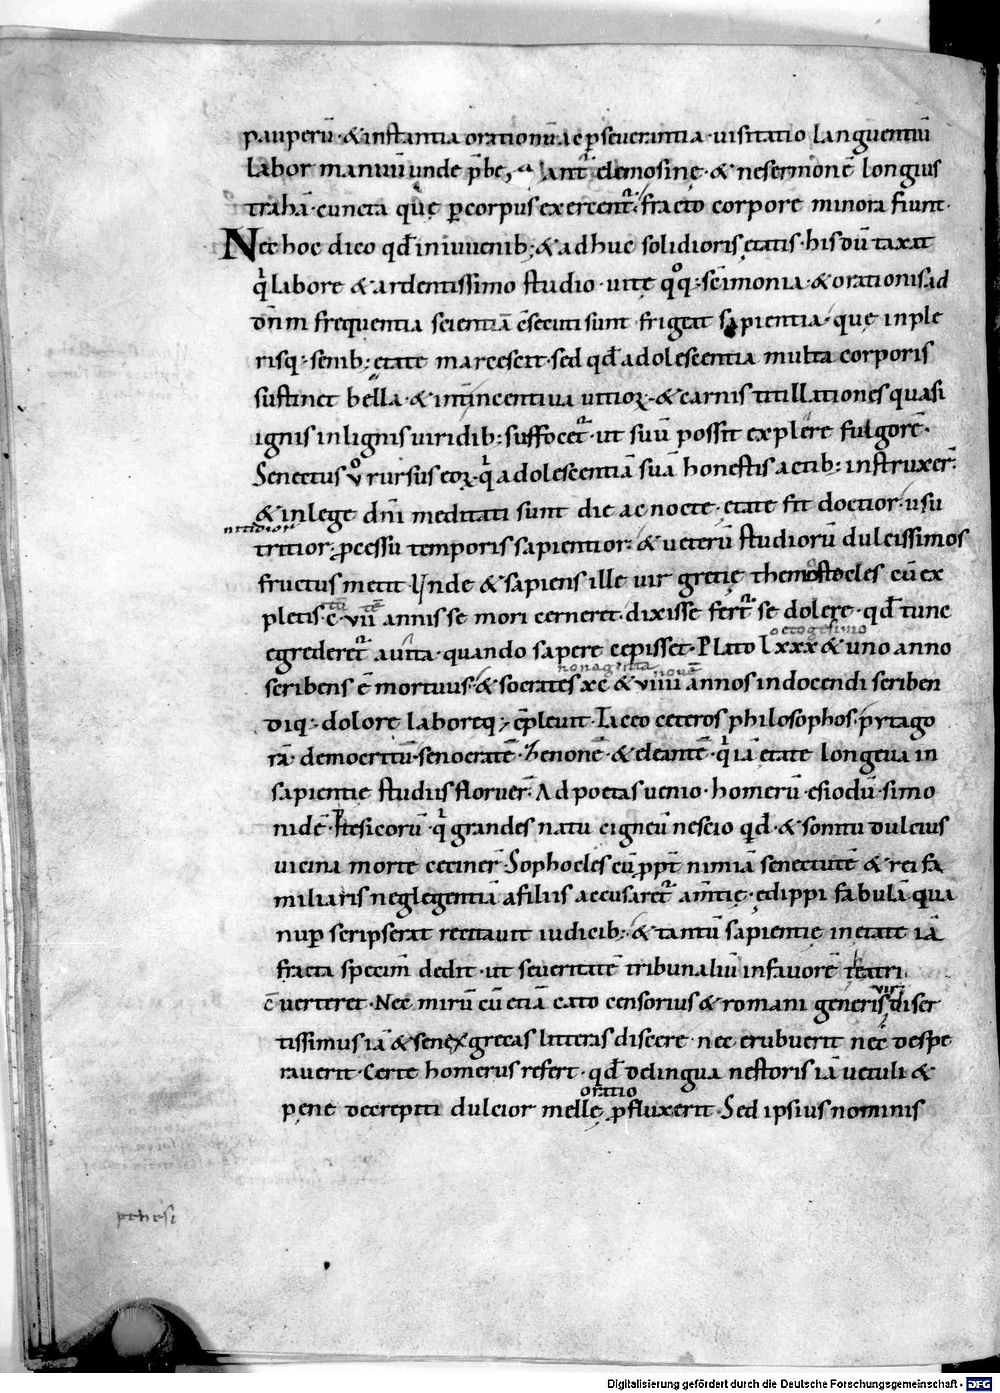 pauperū · & instantia orationū ac pseuerantia · uisitatio languentiū
labor manuū unde p̄be antr̄ elemosinę · & ne sermonē longius
trahā · cuncta quę p corpus exercentr̄ · fracto corpore minora fiunt ·
Nec hoc dico qđ in iuuenib; & adhuc solidioris ętatis · his dūtaxat
q̄ labore & ardentissimo studio · uitę qq; scimonia · & orationis ad
dn̄m frequentia scientiā c̄secuti sunt frigeat sapientia · quę in ple
risq; senib; ętate marcescit · sed qđ adolescentia multa corporis
sustinet bella · & int̄ incentiua uitioꝝ · & carnis titillationes quasi
ignis in lignis uiridib; suffocetr̄ · ut suū possit explere fulgorē ·
Senectus v̊ rursus eoꝝ · q̄ adolescentiā suā honestis actib; instruxer̄ ·
& in lege dn̄i meditati sunt die ac nocte · ętate fit doctior · usu
nitidior
tritior · pcessu temporis sapientior · & ueterū studiorū dulcissimos
fructus metit · Unde & sapiens ille uir gretię themostocles cū ex
pletis · c̄ · vii annis se mori cerneret · dixisse fertr̄ se dolere · qđ tunc
octogesimo
egrederetr̄ a uita · quando sapere cepisset · Plato Lxxx & uno anno
nonaginta nouē
scribens ē mortuus · & socrates xc & viiii annos in docendi scriben
diq; dolore laboreq; c̄pleuit · Taceo ceteros philosophos · pytago
rā · democritū · senocratē · Zenonē · & cleantē · q̄ iā ętate longeua in
sapientię studiis floruer̄ · Ad poetas uenio · homerū · esiodū · simo
nidē · stesicorū · q̄ grandes natu cigneū nescio qđ · & sonitu dulcius
uicina morte ceciner̄ · Sophocles cū ppt̄ nimiā senectutē & rei fa
miliaris neglegentiā a filiis accusaretr̄ am̄tię · ędippi fabulā qua
nup scripserat recitauit iudicib; & tantū sapientię in ętate iā
fracta specim̄ dedit · ut seueritatē tribunaliū in fauorē teatri
viri
c̄uerteret · Nec mirū cū etiā cato censorius & romani generis diser
tissimus iā & senex grecas litteras discere · nec erubuerit nec despe
rauerit · Certe homerus refert · qđ de lingua nestoris iā uetuli &
oratio
pene decrepiti dulcior melle pfluxerit · Sed ipsius nominis